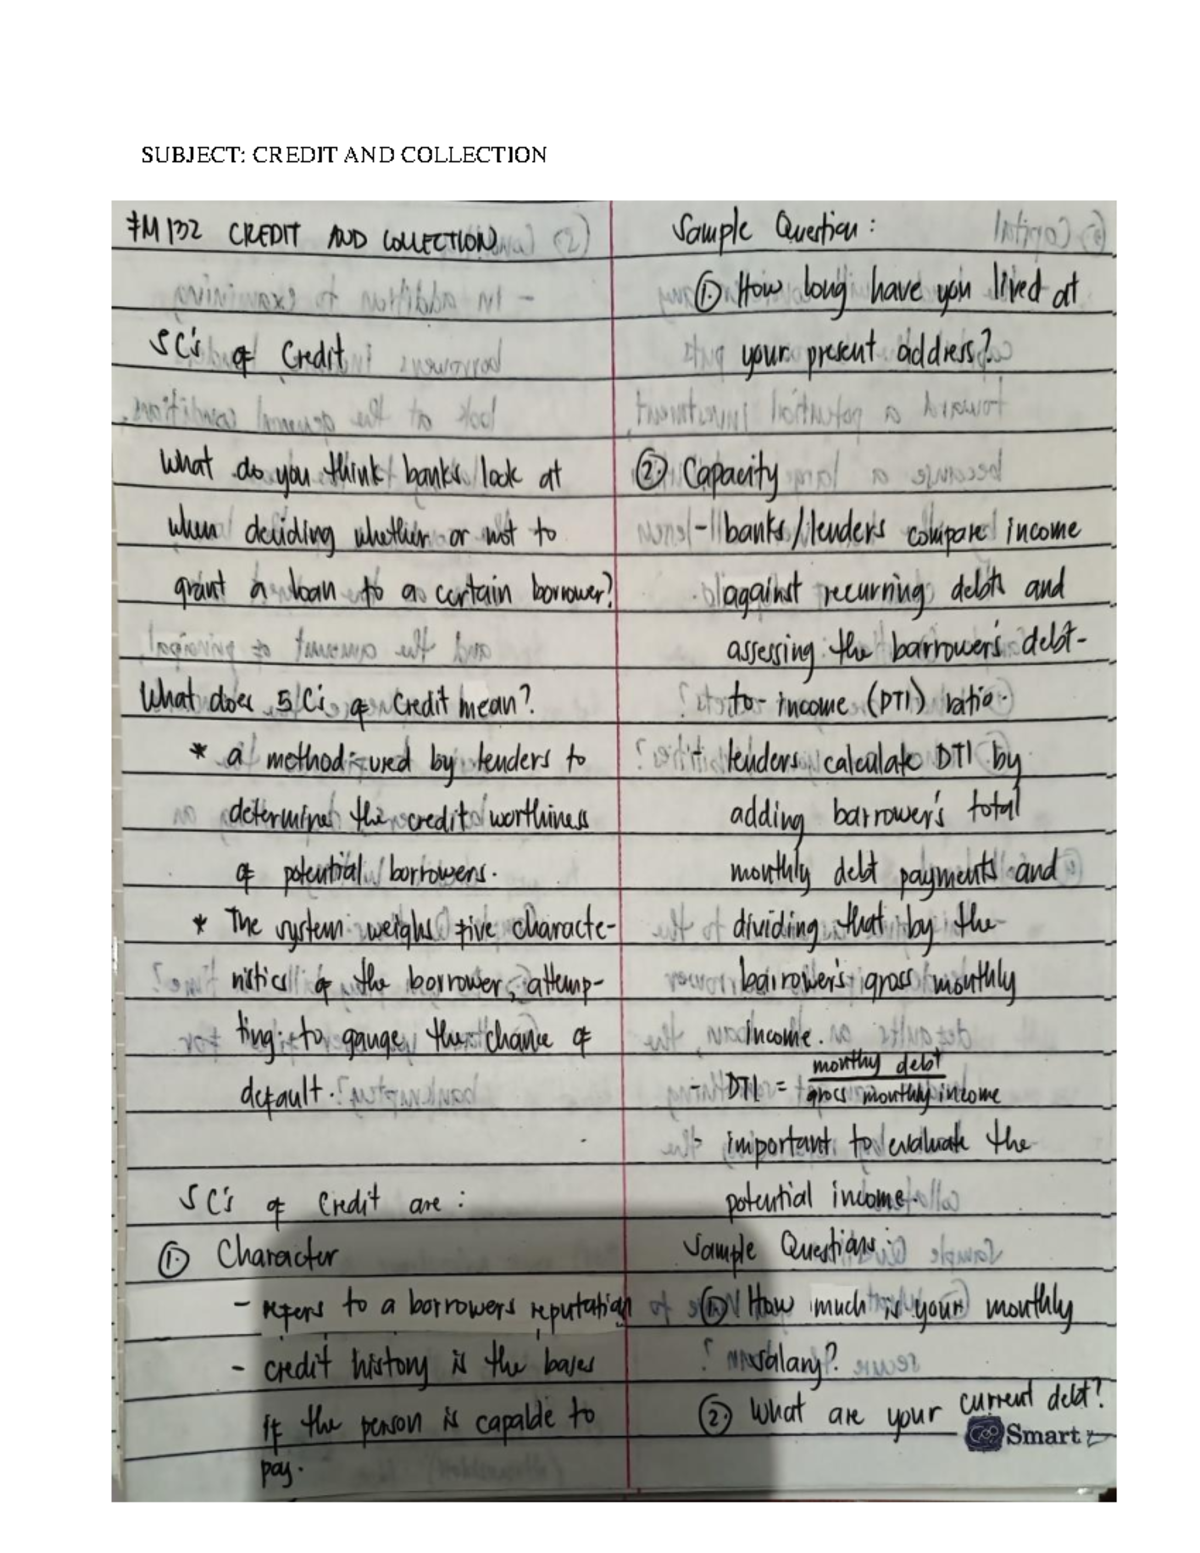 SUBJECT: CREDIT AND COLLECTION
FM 132 CREDIT AND COLLECTION
5 C's of Credit
What do you think banks look at
when deciding whether or not to
grant a loan to a certain borrower?
What does 5 C's of Credit mean?
* a method used by lenders to
determine the credit worthiness
of potential borrowers.
* The system weighs five characte-
ristics of the borrower, attemp-
ting to gauge the chance of
default.
5 C's of Credit are :
① Character
- refers to a borrowers reputation
- credit history is the bases
if the person is capable to
pay.
Sample Question :
① How long have you lived at
your present address?
② Capacity
- banks/lenders compare income
against recurring debts and
assessing the borrower's debt-
to- income (DTI) ratio.
- lenders calculate DTI by
adding borrower's total
monthly debt payments and
dividing that by the
borrower's gross monthly
income.
- DTI = monthy debt
gross monthly income
- important to evaluate the
potential income.
Sample Questions :
① How much is your monthly
salary?
② What are your current debt?
Smart